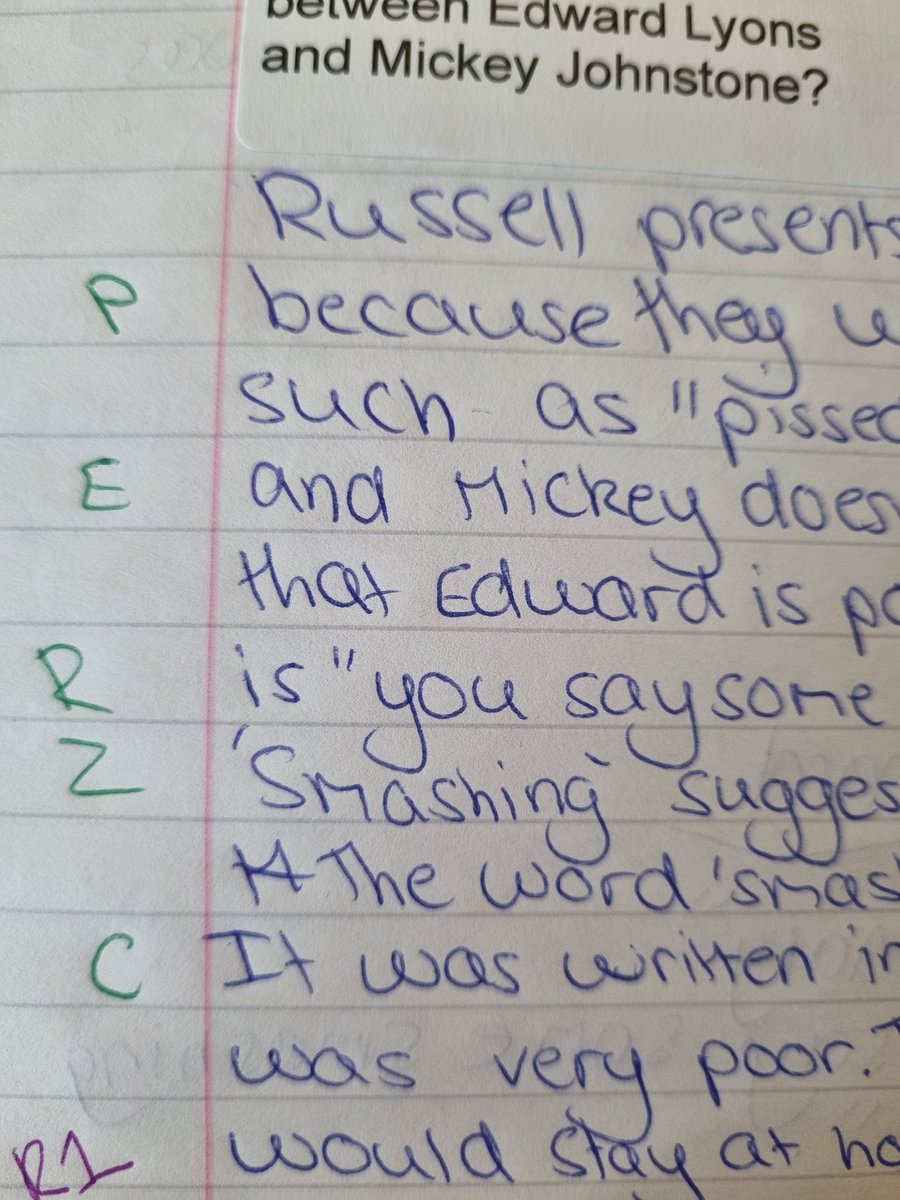 between Edward Lyons
and Mickey Johnstone?
Russell presents
P because they
such as "pissed
E and Mickey does
that Edward is
R is "you say some
Z 'Smashing' sugges
The word 'smas
C It was written in
was very poor.
R1 would stay at